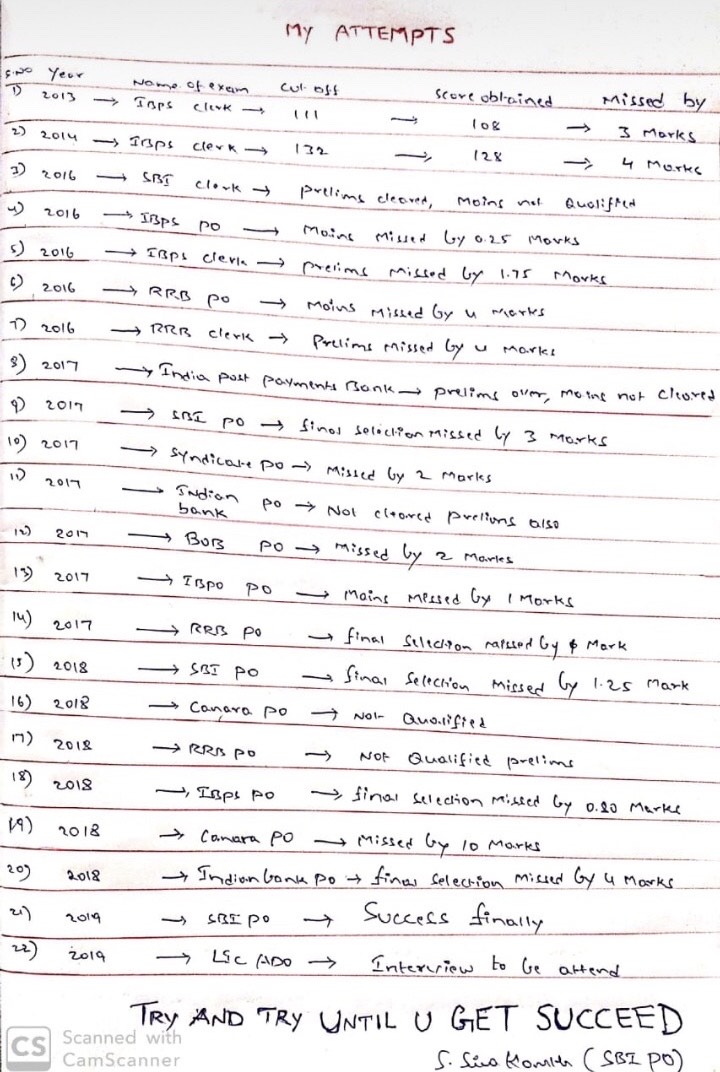 MY ATTEMPTS
S.NO Year Name of exam Cut off Score obtained Missed by
1) 2013 → IBPS clerk → 111 → 108 → 3 Marks
2) 2014 → IBPS clerk → 132 → 128 → 4 Marks
3) 2016 → SBI clerk → prelims cleared, Mains not Qualified
4) 2016 → IBPS PO → Mains Missed by 0.25 Marks
5) 2016 → IBPS clerk → prelims Missed by 1.75 Marks
6) 2016 → RRB PO → Mains Missed by 4 Marks
7) 2016 → RRB clerk → Prelims Missed by 4 Marks
8) 2017 → India post payments Bank → prelims over, Mains not cleared
9) 2017 → SBI PO → final selection Missed by 3 Marks
10) 2017 → Syndicate PO → Missed by 2 Marks
11) 2017 → Indian bank PO → Not cleared prelims also
12) 2017 → BOB PO → Missed by 2 Marks
13) 2017 → IBPO PO → Mains Messed by 1 Marks
14) 2017 → RRB PO → final selection missed by Mark
15) 2018 → SBI PO → final selection Missed by 1.25 Mark
16) 2018 → Canara PO → Not Qualified
17) 2018 → RRB PO → Not Qualified prelims
18) 2018 → IBPS PO → final selection Missed by 0.20 Marks
19) 2018 → Canara PO → Missed by 10 Marks
20) 2018 → Indian bank PO → final selection Missed by 4 Marks
21) 2019 → SBI PO → Success finally
22) 2019 → LIC ADO → Interview to be attend
TRY AND TRY UNTIL U GET SUCCEED
S. Siva (SBI PO)
CS Scanned with
CamScanner